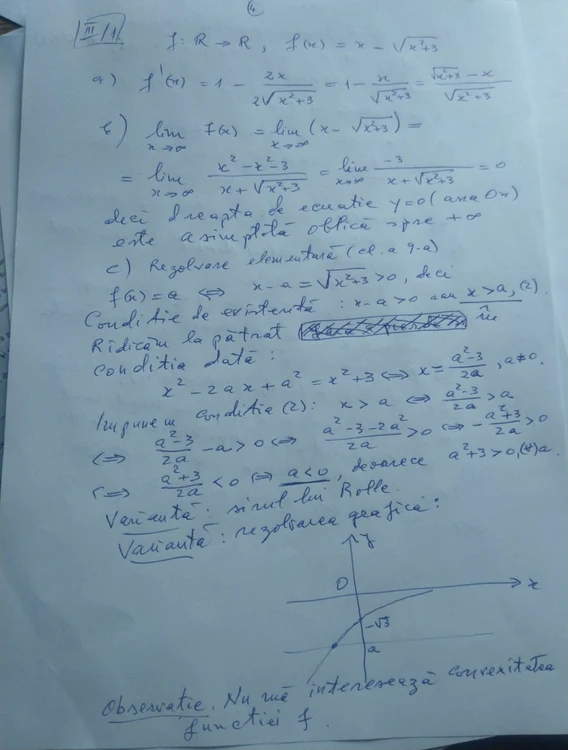 4
III/1.
f: R → R, f(x) = x - √(x²+3)
a) f'(x) = 1 - 2x/(2√(x²+3)) = 1 - x/√(x²+3) = (√(x²+3) - x)/√(x²+3)
b) lim x→∞ f(x) = lim x→∞ (x - √(x²+3)) =
= lim x→∞ (x² - x² - 3)/(x + √(x²+3)) = lim x→∞ -3/(x + √(x²+3)) = 0
deci dreapta de ecuatie y=0 (axa Ox)
este asimptotă oblică spre +∞
c) Rezolvare elementară (cl. a 9-a)
f(x) = a ⇔ x - a = √(x²+3) > 0, deci
Conditie de existență: x-a>0 sau x>a, (2).
Ridicăm la pătrat în
conditia dată:
x² - 2ax + a² = x² + 3 ⇔ x = (a²-3)/2a, a≠0.
Impunem conditia (2): x > a ⇔ (a²-3)/2a > a
⇔ (a²-3)/2a - a > 0 ⇔ (a²-3-2a²)/2a > 0 ⇔ -(a²+3)/2a > 0
⇔ (a²+3)/2a < 0 ⇔ a<0, deoarece a²+3>0, (∀)a.
Variantă: sirul lui Rolle.
Variantă: rezolvarea grafică:
y
O
x
-√3
a
Observatie. Nu mă interesează convexitatea
functiei f.